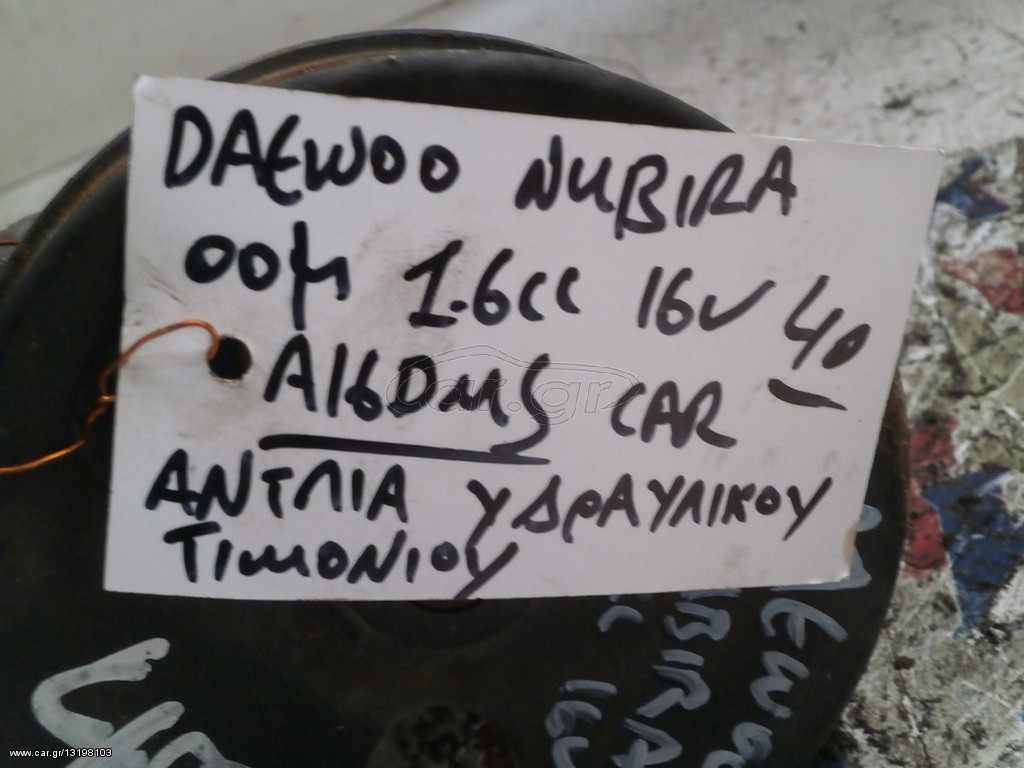 DAEWOO NUBIRA
00μ 1.6cc 16v 40
A16DMS CAR
ΑΝΤΛΙΑ ΥΔΡΑΥΛΙΚΟΥ
ΤΙΜΟΝΙΟΥ
car.gr
BIRA
16v
www.car.gr/13198103